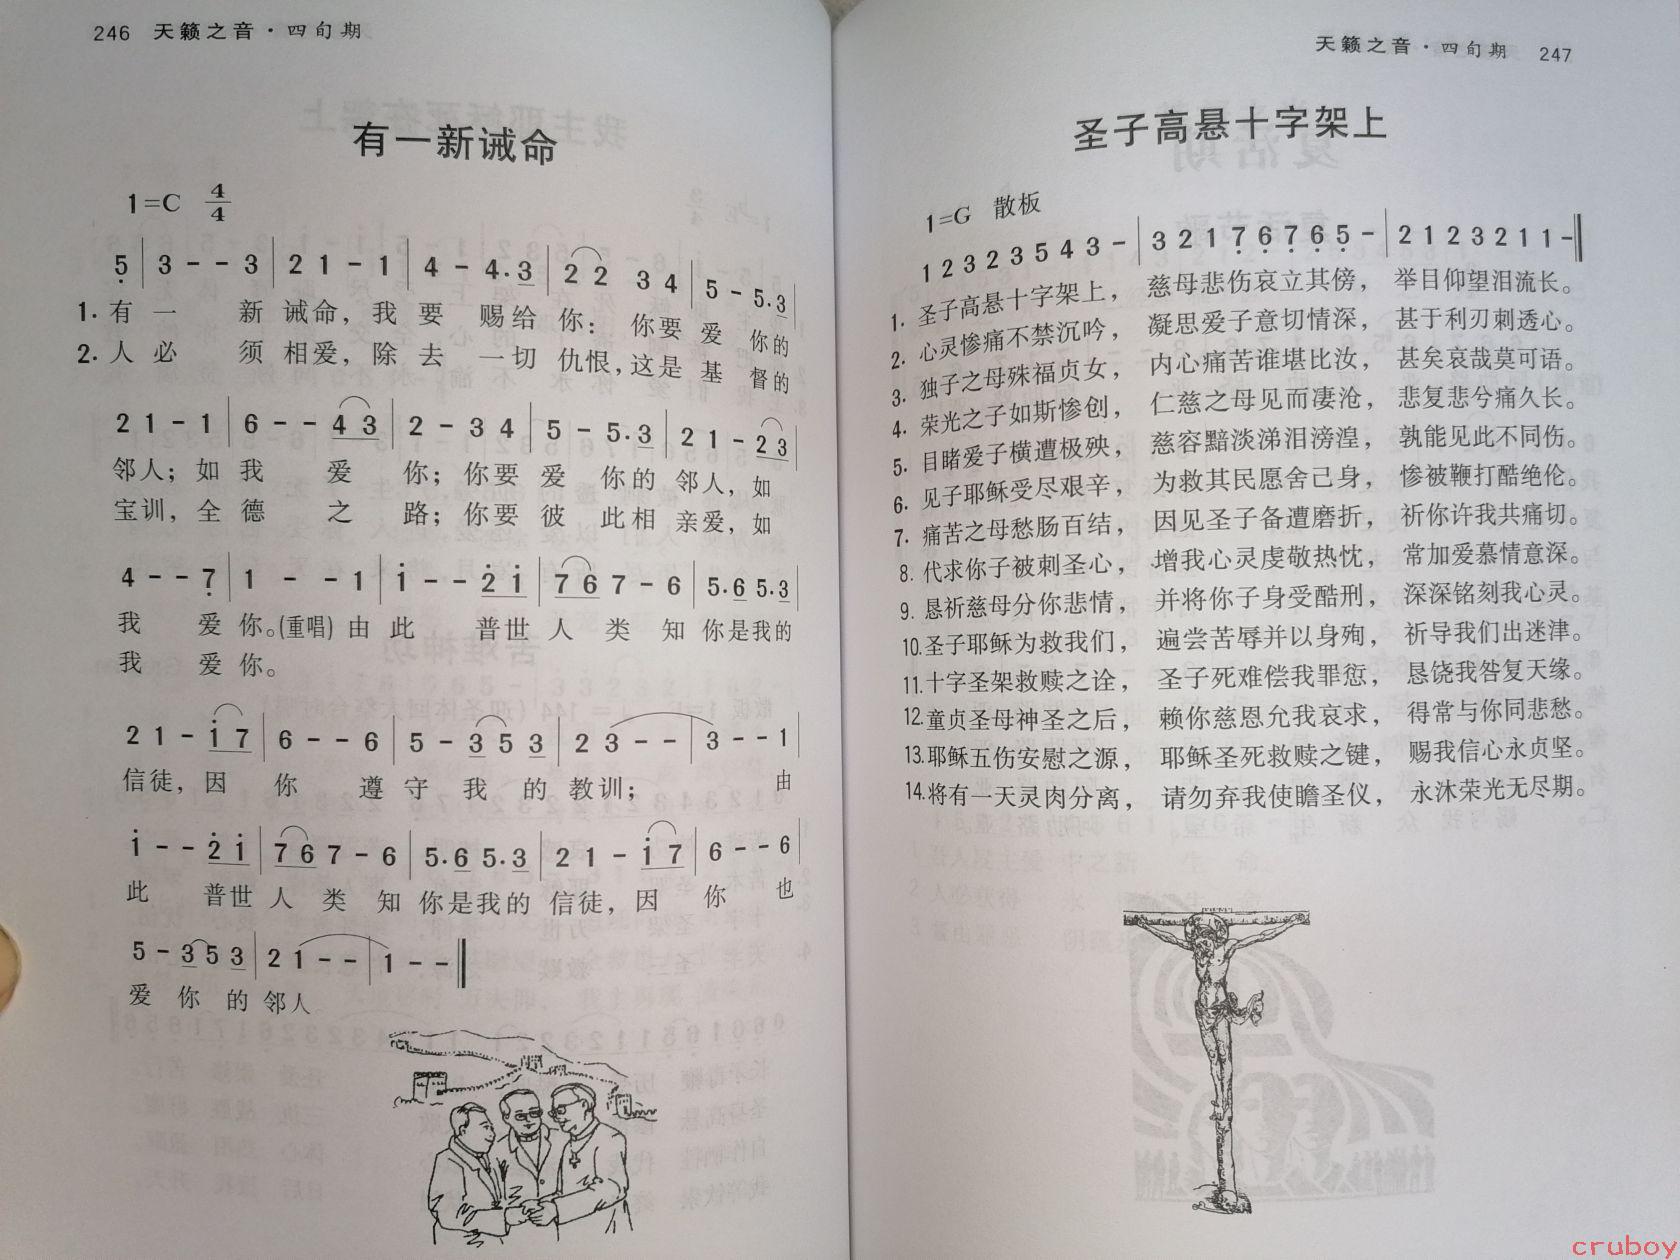 246 天籁之音·四旬期
有一新诫命
1=C 4/4
5 | 3 - - 3 | 2 1 - 1 | 4 - 4. 3 | 2 2 3 4 | 5 - 5. 3 |
1. 有一 新诫命，我要 赐给你：你要爱 你的
2. 人必 须相爱，除去 一切仇恨，这是基 督的
2 1 - 1 | 6 - - 4 3 | 2 - 3 4 | 5 - 5. 3 | 2 1 - 2 3 |
邻人；如我 爱 你；你要爱 你的邻人，如
宝训，全德 之 路；你要彼 此相亲爱，如
4 - - 7 | 1 - - 1 | i - - 2 i | 7 6 7 - 6 | 5. 6 5. 3 |
我 爱你。(重唱) 由此 普世人类知你是我的
我 爱你。
2 1 - i 7 | 6 - - 6 | 5 - 3 5 3 | 2 3 - - | 3 - - 1 |
信徒，因你 遵守 我的教训； 由
i - - 2 i | 7 6 7 - 6 | 5. 6 5. 3 | 2 1 - i 7 | 6 - - 6 |
此 普世人类知你是我的信徒，因你 也
5 - 3 5 3 | 2 1 - - | 1 - - ‖
爱你的邻人
天籁之音·四旬期 247
圣子高悬十字架上
1=G 散板
1 2 3 2 3 5 4 3 - | 3 2 1 7 6 7 6 5 - | 2 1 2 3 2 1 1 - ‖
1. 圣子高悬十字架上， 慈母悲伤哀立其傍， 举目仰望泪流长。
2. 心灵惨痛不禁沉吟， 凝思爱子意切情深， 甚于利刃刺透心。
3. 独子之母殊福贞女， 内心痛苦谁堪比汝， 甚矣哀哉莫可语。
4. 荣光之子如斯惨创， 仁慈之母见而凄沧， 悲复悲兮痛久长。
5. 目睹爱子横遭极殃， 慈容黯淡涕泪滂湟， 孰能见此不同伤。
6. 见子耶稣受尽艰辛， 为救其民愿舍己身， 惨被鞭打酷绝伦。
7. 痛苦之母愁肠百结， 因见圣子备遭磨折， 祈你许我共痛切。
8. 代求你子被刺圣心， 增我心灵虔敬热忱， 常加爱慕情意深。
9. 恳祈慈母分你悲情， 并将你子身受酷刑， 深深铭刻我心灵。
10.圣子耶稣为救我们， 遍尝苦辱并以身殉， 祈导我们出迷津。
11.十字圣架救赎之诠， 圣子死难偿我罪愆， 恳饶我咎复天缘。
12.童贞圣母神圣之后， 赖你慈恩允我哀求， 得常与你同悲愁。
13.耶稣五伤安慰之源， 耶稣圣死救赎之键， 赐我信心永贞坚。
14.将有一天灵肉分离， 请勿弃我使瞻圣仪， 永沐荣光无尽期。
cruboy